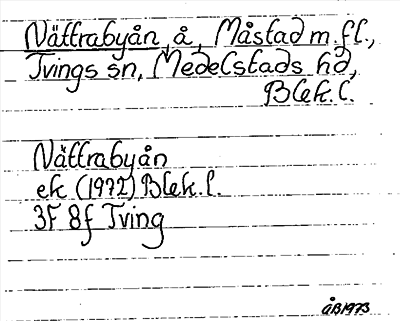 Nättrabyån, å, Måstad m.fl.,
Tvings sn, Medelstads hd,
Blek.l.
Nättrabyån
ek (1972) Blek.l.
3F 8f Tving
ÅB1973